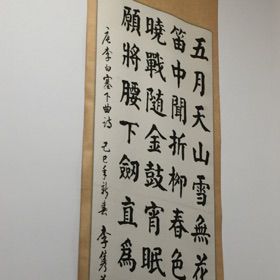 五月天山雪無花
笛中聞折柳春色
曉戰隨金鼓宵眠
願將腰下劒直爲
唐李白塞下曲诗 己巳年新春 李